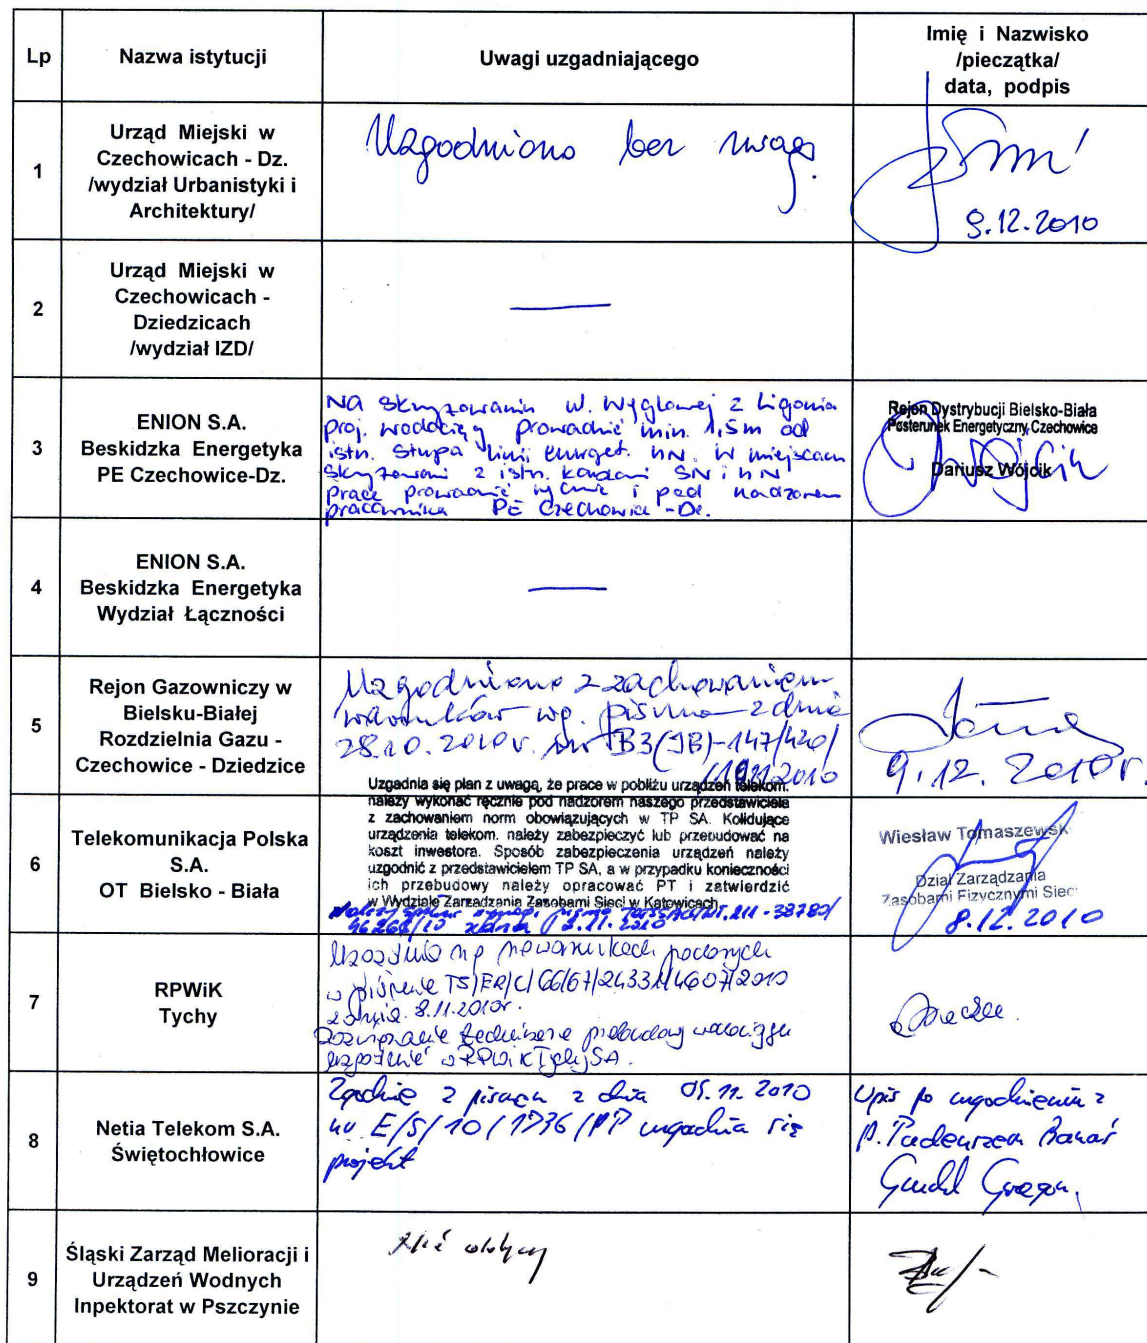 Lp
Nazwa istytucji
Uwagi uzgadniającego
Imię i Nazwisko
/pieczątka/
data, podpis
1
Urząd Miejski w
Czechowicach - Dz.
/wydział Urbanistyki i
Architektury/
Uzgodniono bez uwag.
9.12.2010
2
Urząd Miejski w
Czechowicach -
Dziedzicach
/wydział IZD/
3
ENION S.A.
Beskidzka Energetyka
PE Czechowice-Dz.
Na skrzyżowaniu ul. Węglowej z Ligonia
proj. wodociąg prowadzić min. 1,5m od
istn. słupa linii energet. nN. W miejscach
skrzyżowań z istn. kablami SN i nN
prace prowadzić ręcznie i pod nadzorem
pracownika PE Czechowice-Dz.
Rejon Dystrybucji Bielsko-Biała
Posterunek Energetyczny Czechowice
Dariusz Wójcik
4
ENION S.A.
Beskidzka Energetyka
Wydział Łączności
5
Rejon Gazowniczy w
Bielsku-Białej
Rozdzielnia Gazu -
Czechowice - Dziedzice
Uzgodniono z zachowaniem
warunków wg. pisma z dnia
28.10.2010r.
9.12.2010r.
6
Telekomunikacja Polska
S.A.
OT Bielsko - Biała
Uzgadnia się plan z uwagą, że prace w pobliżu urządzeń telekom.
należy wykonać ręcznie pod nadzorem naszego przedstawiciela
z zachowaniem norm obowiązujących w TP SA. Kolidujące
urządzenia telekom. należy zabezpieczyć lub przebudować na
koszt inwestora. Sposób zabezpieczenia urządzeń należy
uzgodnić z przedstawicielem TP SA, a w przypadku konieczności
ich przebudowy należy opracować PT i zatwierdzić
w Wydziale Zarządzania Zasobami Sieci w Katowicach.
Wiesław Tomaszewsk
Dział Zarządzania
Zasobami Fizycznymi Sieci
8.12.2010
7
RPWiK
Tychy
w piśmie
z dnia 8.11.2010r.
uzgodnić w RPWiK Tychy SA.
8
Netia Telekom S.A.
Świętochłowice
Zgodnie z pismem z dnia 05.11.2010
uzgadnia się
projekt
Wpis po uzgodnieniu z
p. Tadeuszem
9
Śląski Zarząd Melioracji i
Urządzeń Wodnych
Inpektorat w Pszczynie